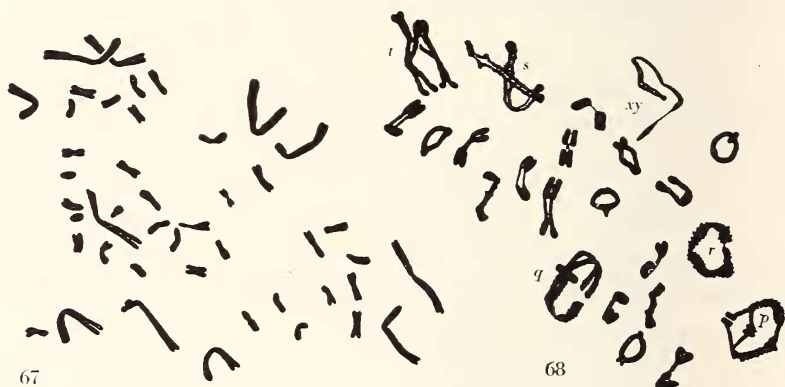 t
s
xy
r
q
p
67
68